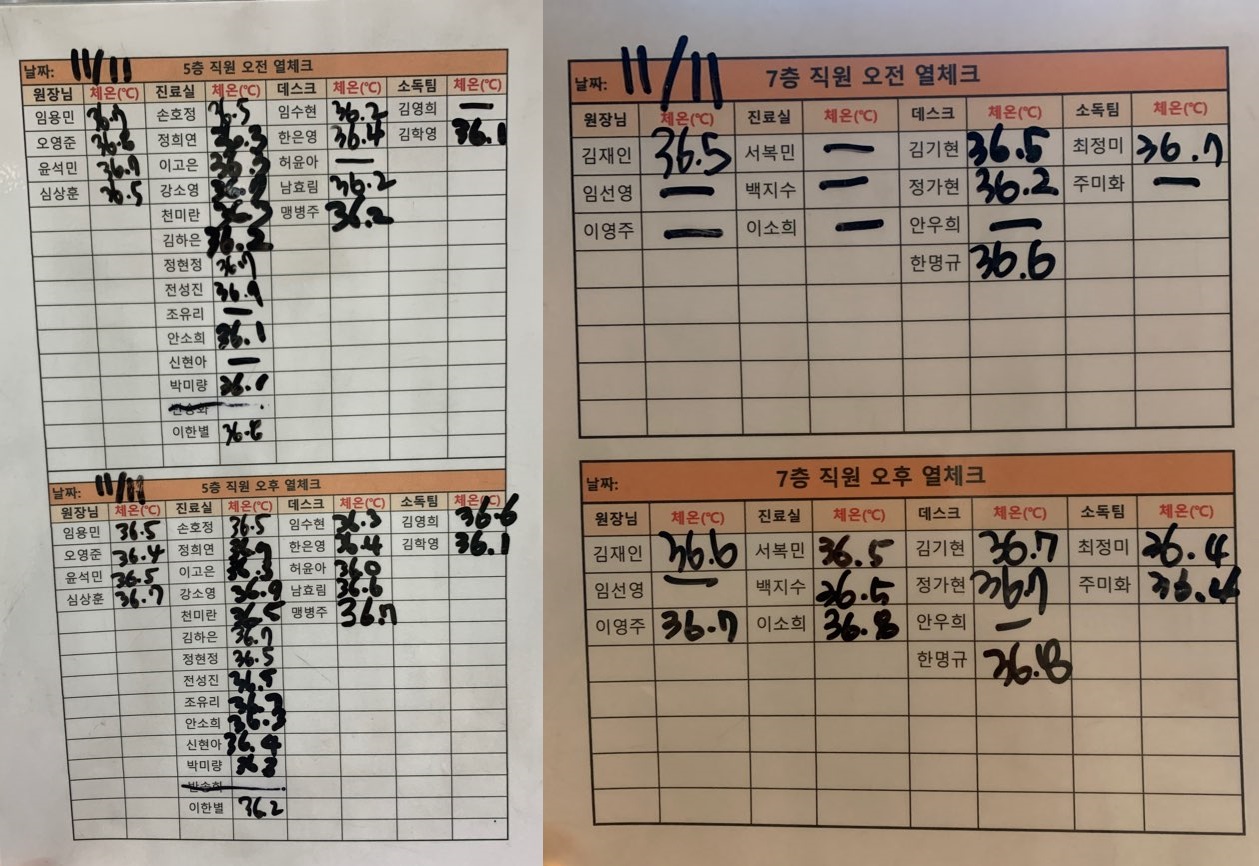 날짜: 11/11 5층 직원 오전 열체크
원장님 체온(℃) 진료실 체온(℃) 데스크 체온(℃) 소독팀 체온(℃)
임용민 36.7 손호정 36.5 임수현 36.2 김영희 —
오영준 36.6 정희연 36.3 한은영 36.4 김학영 36.1
윤석민 36.9 이고은 36.3 허윤아 —
심상훈 36.5 강소영 남효림 36.2
천미란 36.3 맹병주 36.2
김하은 36.2
정현정 36.7
전성진 36.9
조유리 —
안소희 36.1
신현아 —
박미량 36.1
이한별 36.8
날짜: 11/11 5층 직원 오후 열체크
원장님 체온(℃) 진료실 체온(℃) 데스크 체온(℃) 소독팀 체온(℃)
임용민 36.5 손호정 36.5 임수현 36.3 김영희 36.6
오영준 36.4 정희연 36.9 한은영 36.4 김학영 36.1
윤석민 36.5 이고은 36.3 허윤아 36.0
심상훈 36.7 강소영 36.9 남효림 36.6
천미란 36.5 맹병주 36.7
김하은 36.7
정현정 36.5
전성진
조유리 36.3
안소희 36.3
신현아 36.4
박미량
이한별 36.2
날짜: 11/11 7층 직원 오전 열체크
원장님 체온(℃) 진료실 체온(℃) 데스크 체온(℃) 소독팀 체온(℃)
김재인 36.5 서복민 — 김기현 36.5 최정미 36.7
임선영 — 백지수 — 정가현 36.2 주미화 —
이영주 — 이소희 — 안우희 —
한명규 36.6
날짜: 7층 직원 오후 열체크
원장님 체온(℃) 진료실 체온(℃) 데스크 체온(℃) 소독팀 체온(℃)
김재인 36.6 서복민 36.5 김기현 36.7 최정미 36.4
임선영 — 백지수 36.5 정가현 36.7 주미화 36.4
이영주 36.7 이소희 36.8 안우희 —
한명규 36.8